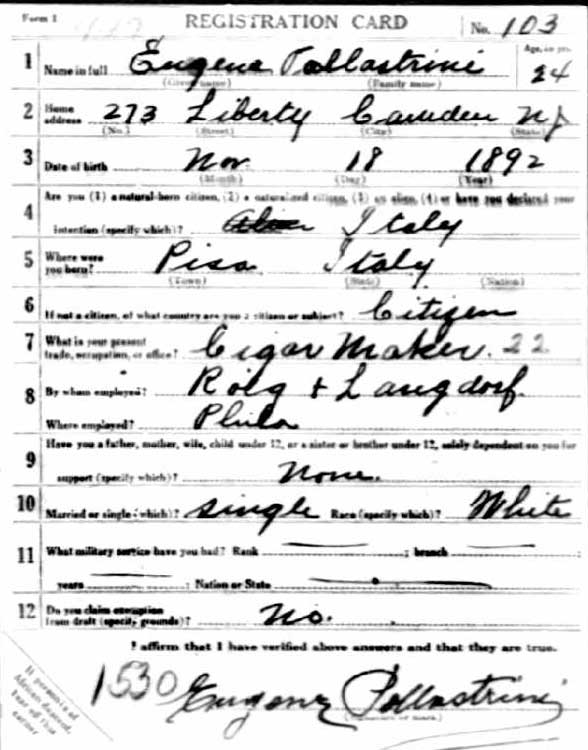 Form 1 REGISTRATION CARD No. 103
1 Name in full Eugene Pollastrini Age, in yrs. 24
(Given name) (Family name)
2 Home address 273 Liberty Camden NJ
(No.) (Street) (City) (State)
3 Date of birth Nov. 18 1892
(Month) (Day) (Year)
Are you (1) a natural-born citizen, (2) a naturalized citizen, (3) an alien, (4) or have you declared your
4 intention (specify which)? Italy
5 Where were you born? Pisa Italy
(Town) (State) (Nation)
6 If not a citizen, of what country are you a citizen or subject? Citizen
7 What is your present trade, occupation, or office? Cigar Maker. 22
8 By whom employed? Roig & Langdorf.
Where employed? Phila
9 Have you a father, mother, wife, child under 12, or a sister or brother under 12, solely dependent on you for
support (specify which)? None.
10 Married or single (which)? Single Race (specify which)? White
11 What military service have you had? Rank ; branch
years ; Nation or State
12 Do you claim exemption from draft (specify grounds)? No.
I affirm that I have verified above answers and that they are true.
1530 Eugene Pollastrini
If person is of
African descent,
tear off this
corner